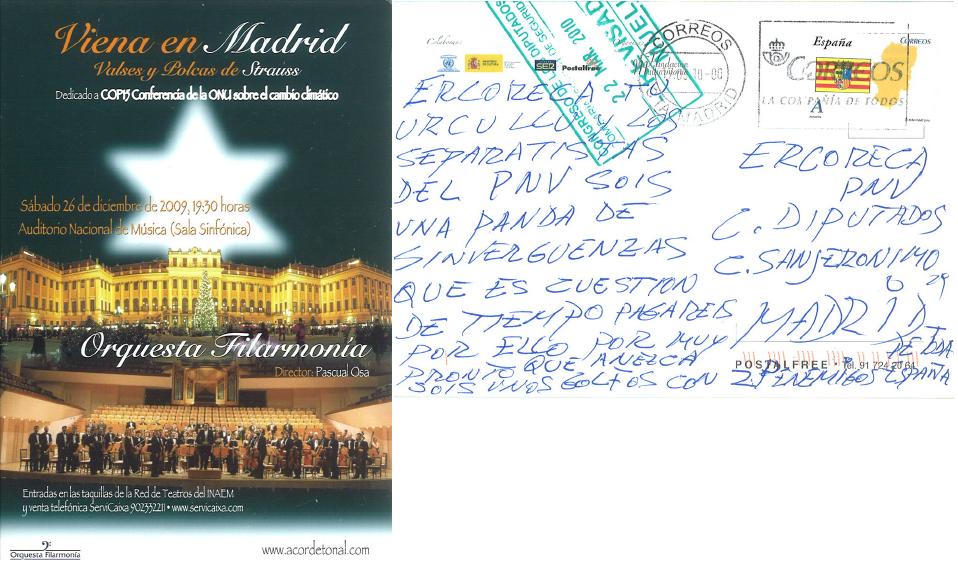 Viena en Madrid
Valses y Polcas de Strauss
Dedicado a COP15 Conferencia de la ONU sobre el cambio climático
Sábado 26 de diciembre de 2009, 19:30 horas
Auditorio Nacional de Música (Sala Sinfónica)
Orquesta Filarmonía
Director: Pascual Osa
Entradas en las taquillas de la Red de Teatros del INAEM
y venta telefónica ServiCaixa 902332211 • www.servicaixa.com
Orquesta Filarmonía
www.acordetonal.com
Colaboran:
Postalfree
CONGRESO DE LOS DIPUTADOS
DE SEGURIDAD
22 MAR. 2010
CORREOS
MADRID
España
CORREOS
CORREOS
LA COMPAÑÍA DE TODOS
A
ERCORECA TU
URCULLU Y LOS
SEPARATISTAS
DEL PNV SOIS
UNA PANDA DE
SINVERGUENZAS
QUE ES CUESTION
DE TIEMPO PAGAREIS
POR ELLO POR MUY
PRONTO QUE ANEZCA
SOIS UNOS GOLFOS CON
ERCORECA
PNV
C. DIPUTADOS
C. SANJERONIMO
MADRID
POSTALFREE • Tel. 91 724 20 64
ENEMIGOS ESPAÑA